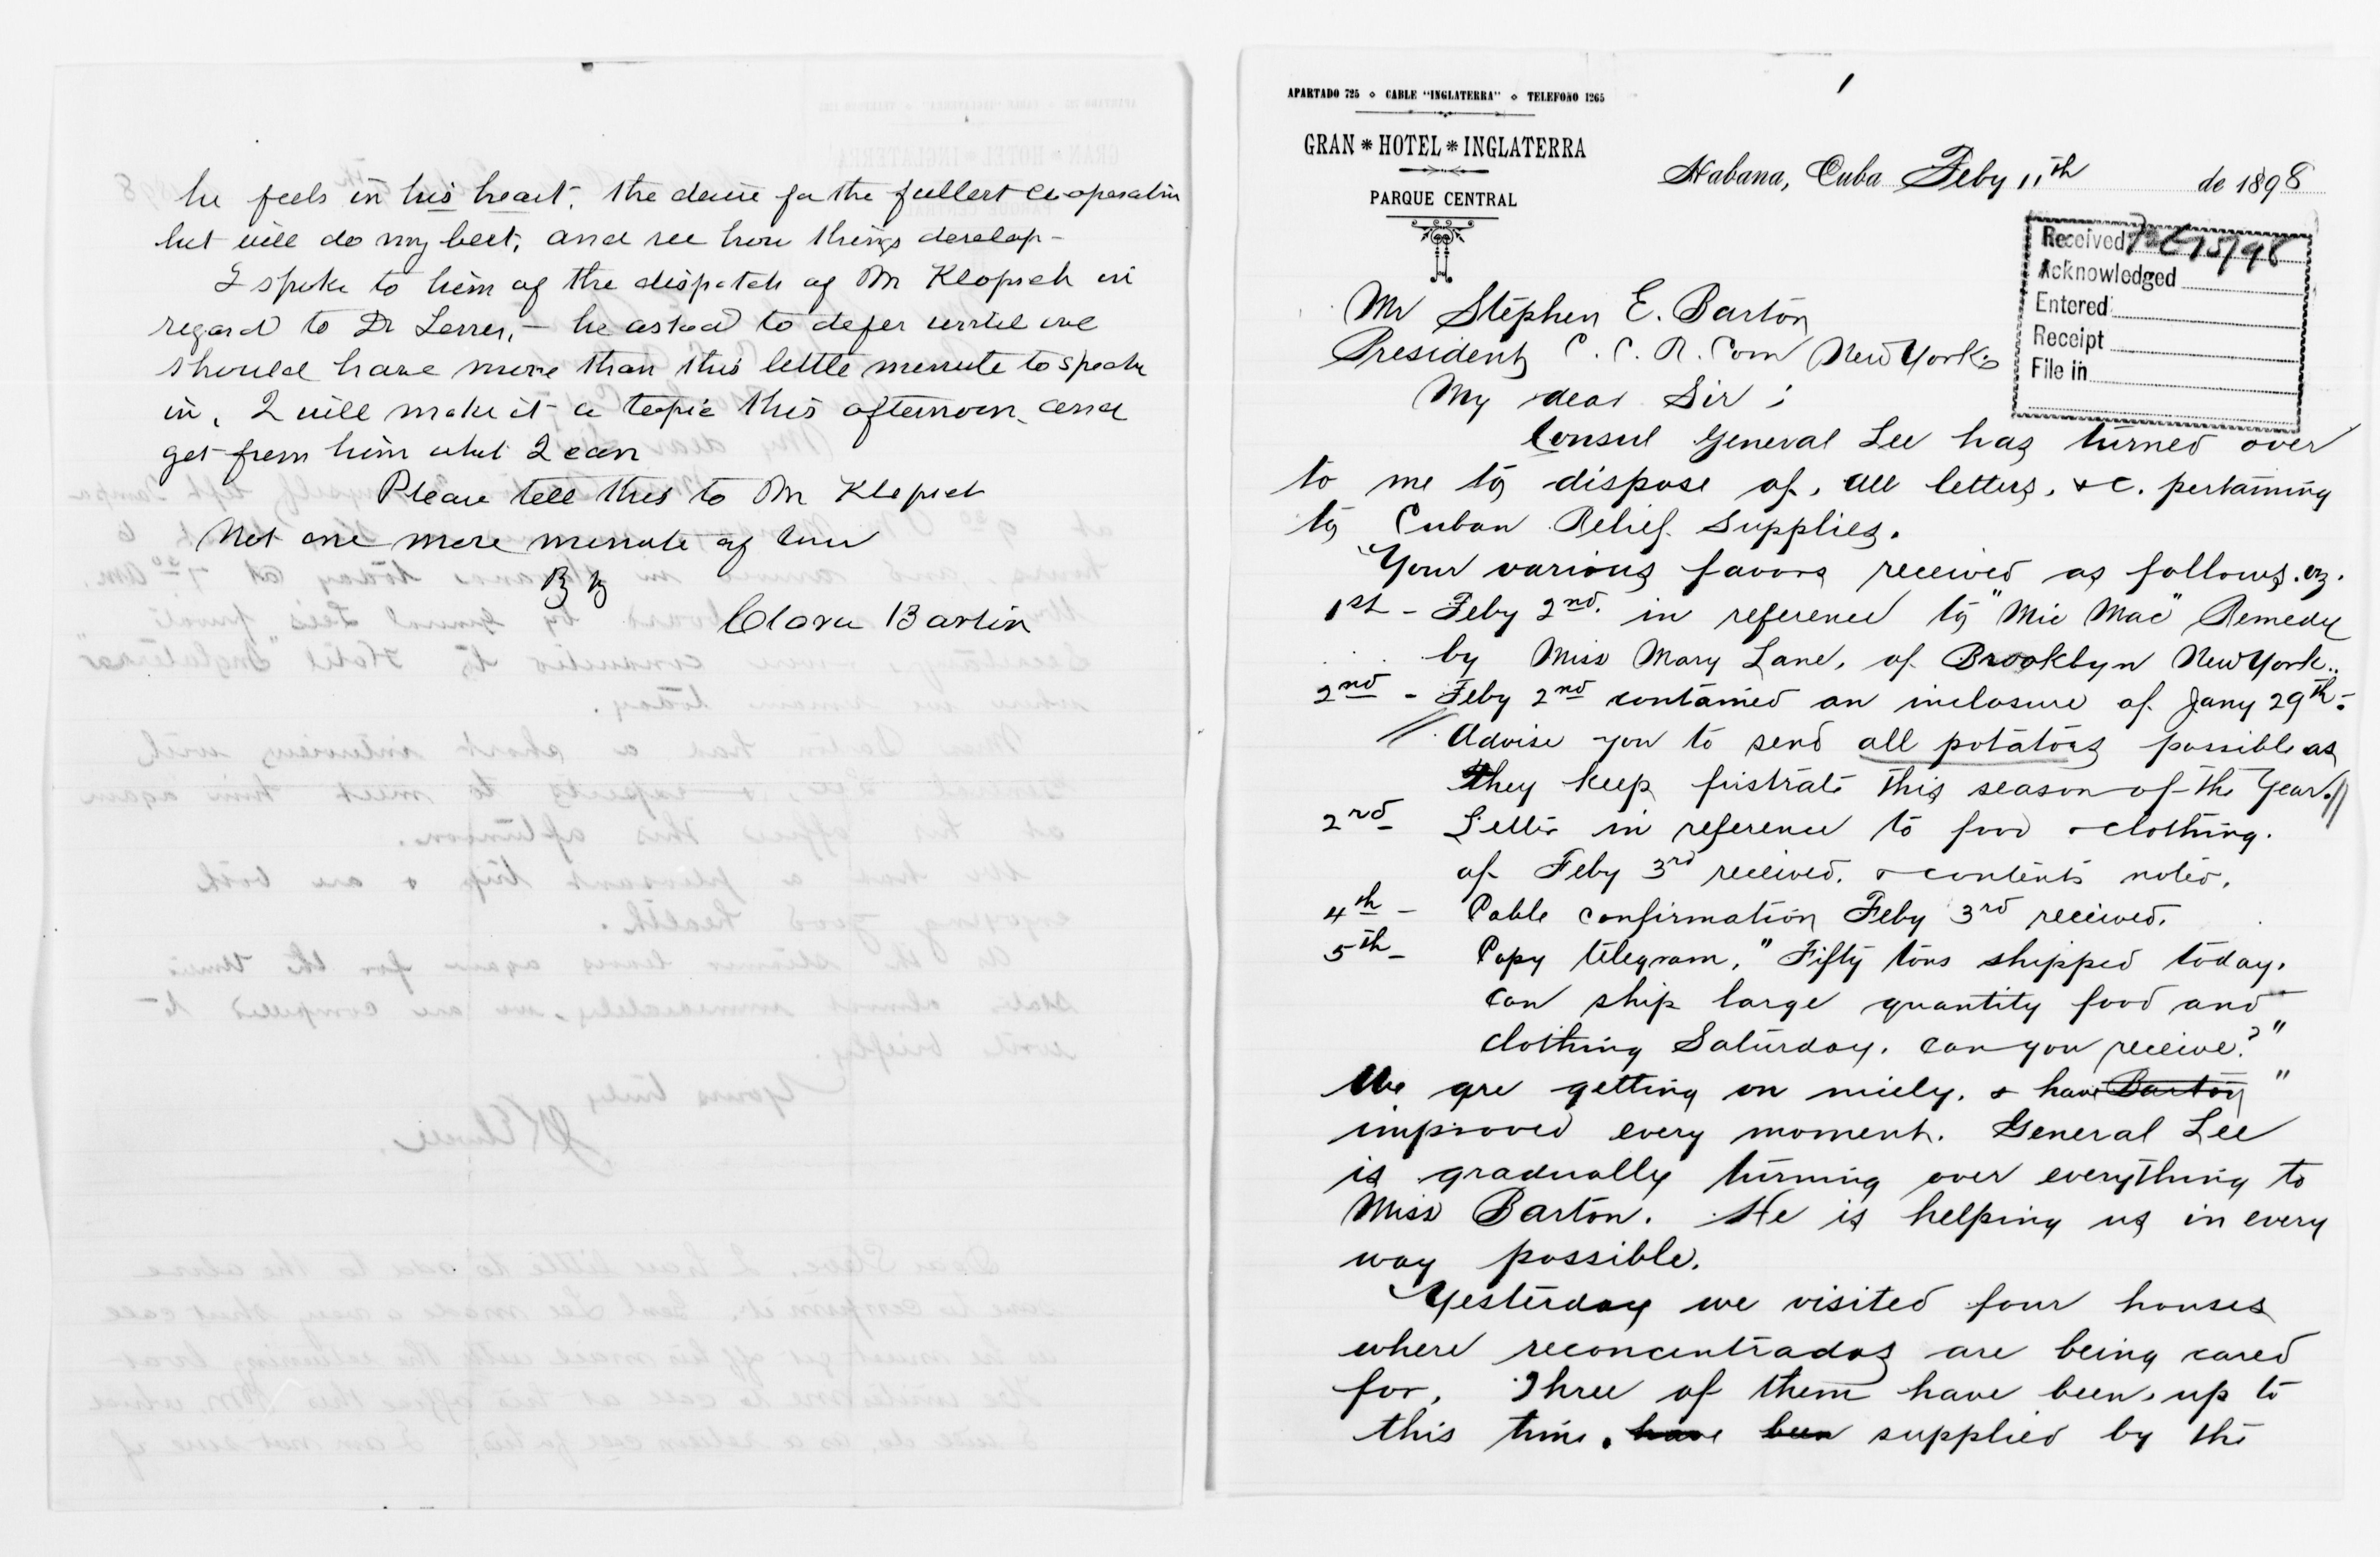 he feels in his heart, the desire for the fullest cooperation
but will do my best, and see how things develop -
I spoke to him of the dispatch of Mr Klopsch in
regard to Dr Lesser, - he asked to defer until we
should have more than this little minute to speak
in, I will make it a topic this afternoon and
get from him what I can
Please tell this to Mr Klopsch
Not one more minute of time
Clara Barton
1
APARTADO 725 ⋄ CABLE "INGLATERRA" ⋄ TELEFONO 1265
GRAN * HOTEL * INGLATERRA
PARQUE CENTRAL
Habana, Cuba Feby 11th de 1898
Received
Acknowledged
Entered
Receipt
File in
Mr Stephen E. Barton
President C. C. R. Com New York
My dear Sir ;
Consul General Lee has turned over
to me to dispose of, all letters, &c. pertaining
to Cuban Relief Supplies.
Your various favors received as follows. viz.
1st - Feby 2nd. in reference to "Mic Mac" Remedy
by Miss Mary Lane, of Brooklyn New York.
2nd - Feby 2nd contained an inclosure of Jany 29th -
// Advise you to send all potatoes possible as
they keep firstrate this season of the Year. //
2rd Letter in reference to food & clothing.
of Feby 3rd received. & contents noted.
4th - Cable confirmation Feby 3rd received.
5th - Copy telegram, "Fifty tons shipped today.
Can ship large quantity food and
clothing Saturday. Can you receive?"
We are getting on nicely. & have Barton "
improved every moment. General Lee
is gradually turning over everything to
Miss Barton. He is helping us in every
way possible.
Yesterday we visited four houses
where reconcentrados are being cared
for. Three of them have been, up to
this time, have been supplied by the